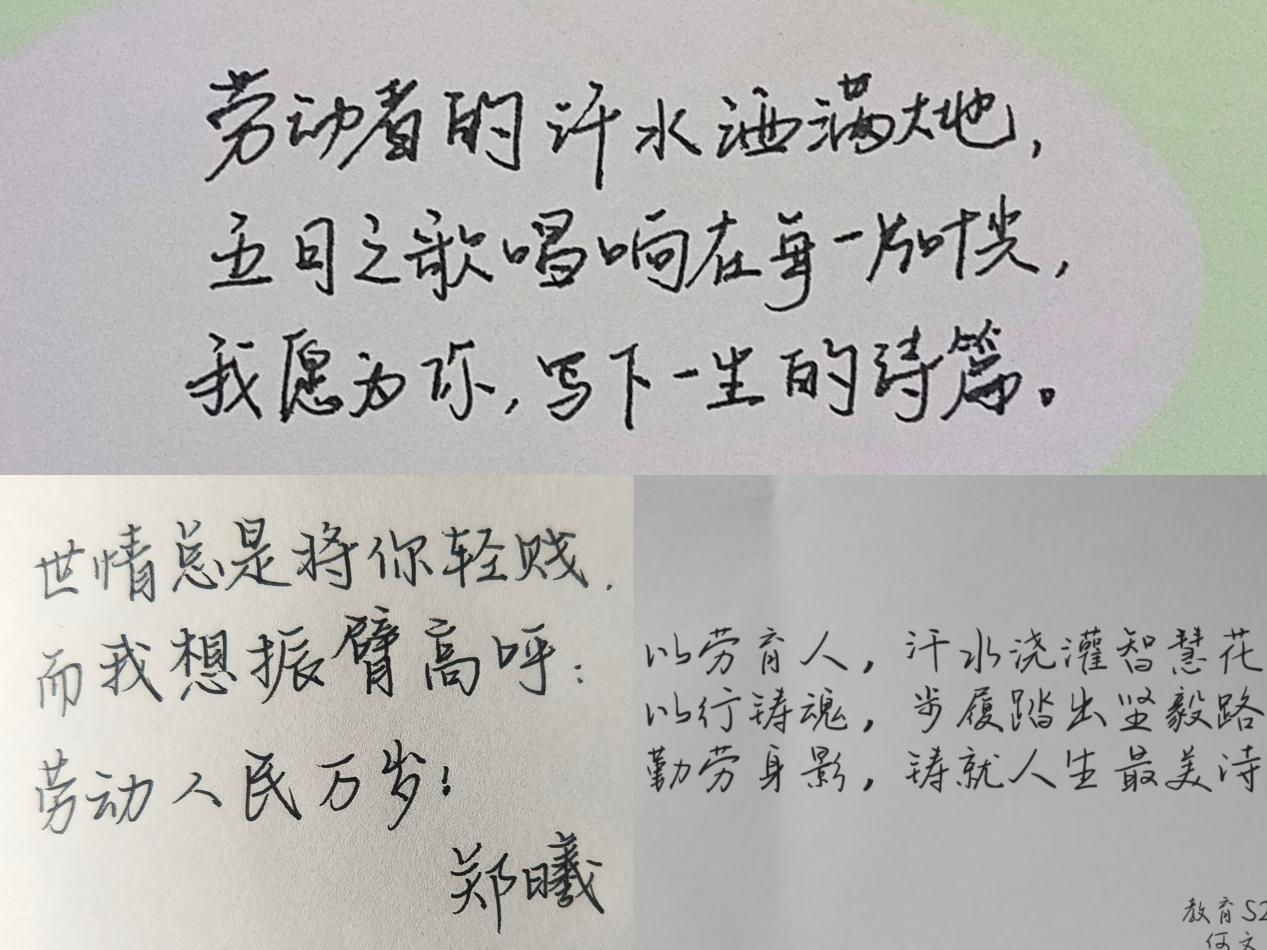 劳动者的汗水洒满大地，
五月之歌唱响在每一片时光，
我愿为你，写下一生的诗篇。
世情总是将你轻贱.
而我想振臂高呼：
劳动人民万岁！
郑曦
以劳育人，汗水浇灌智慧花
以行铸魂，步履踏出坚毅路
勤劳身影，铸就人生最美诗
教育S2
何文